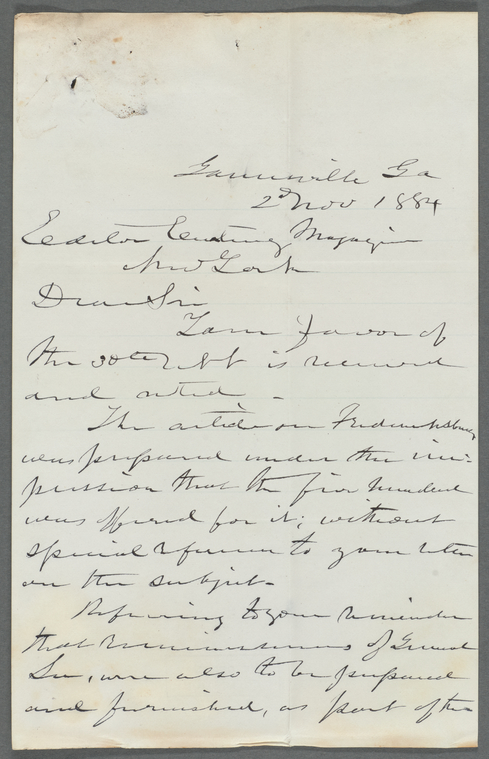 Gainesville Ga
2d Nov 1884
Editor Century Magazine
New York
Dear Sir
Your favor of
the 30th Ult is received
and noted -
The article on Fredericksburg
was prepared under the im-
pression that the five hundred
was offered for it; without
special reference to your letter
on the subject -
Referring to your reminder
that reminiscences of General
Lee, were also to be prepared
and furnished, as part of the